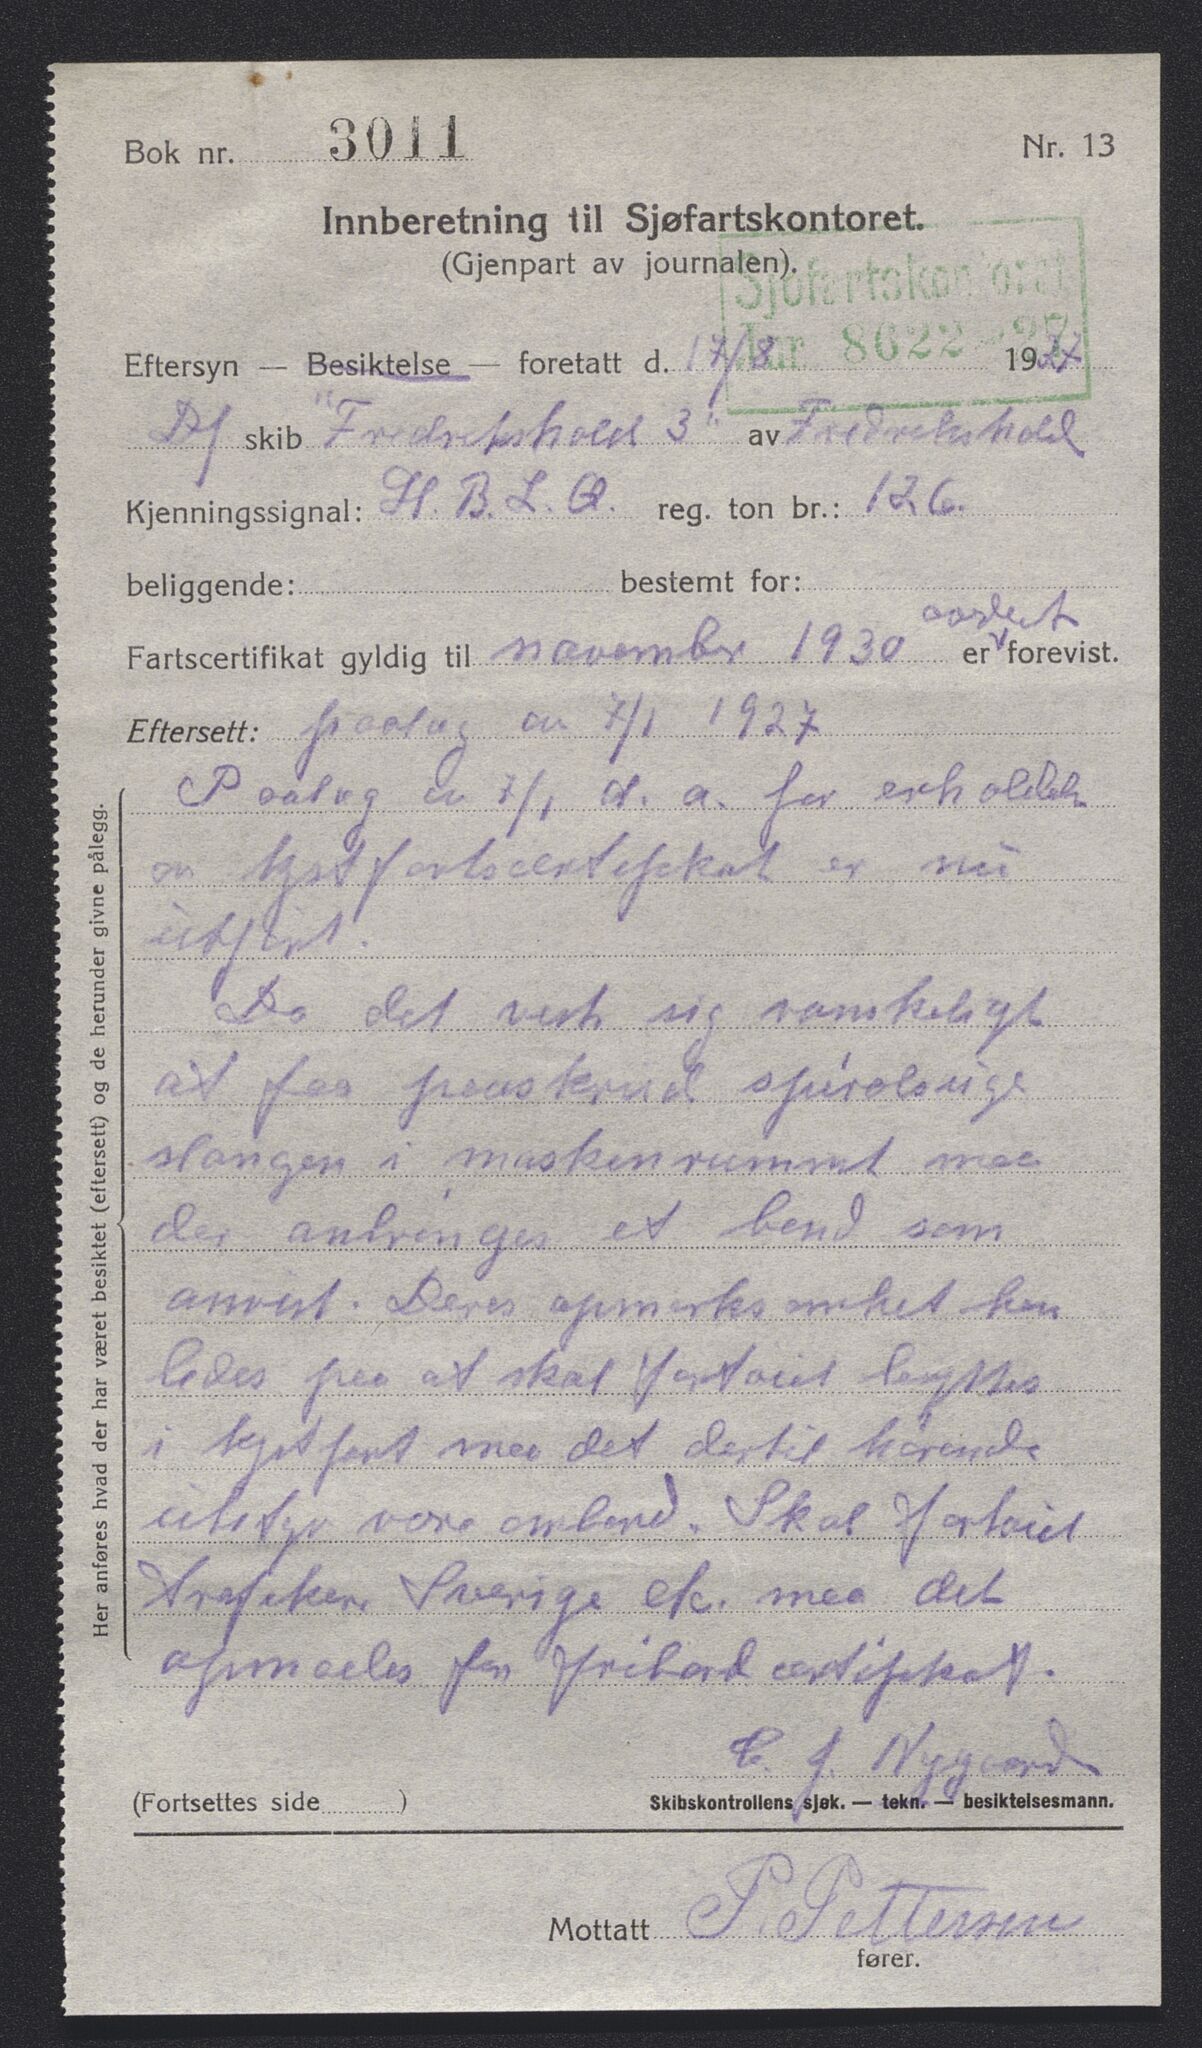 Bok nr. 3011 Nr. 13
Innberetning til Sjøfartskontoret.
(Gjenpart av journalen).
Sjøfartskontoret
Jnr 8622 - 27
Eftersyn — Besiktelse — foretatt d. 17/8 1927
D/ skib "Fredrikshald 3" av Fredrikshald
Kjenningssignal: H. B. L. Q. reg. ton br.: 126.
beliggende: bestemt for:
Fartscertifikat gyldig til november 1930 er forevist.
Eftersett: paalæg av 7/1 1927
Paalæg av 7/1 d. a. for erholdelse
av kystfartscertifikat er nu
utført.
Da det viste sig vanskeligt
at faa paaskrud spiralsuge
slangen i maskinrummet maa
der anbringes et bend som
anvist. Deres opmerksomhet hen
ledes paa at skal fartøiet benyttes
i kystfart maa det dertil hørende
utstyr være ombord. Skal fartøiet
trafikere Sverige etc. maa det
opmaales for fribord certifikat.
C. J. Nygaard
(Fortsettes side )
Skibskontrollens sjøk. — tekn. — besiktelsesmann.
Mottatt P. Pettersen
fører.
Her anføres hvad der har været besiktet (eftersett) og de herunder givne pålegg.